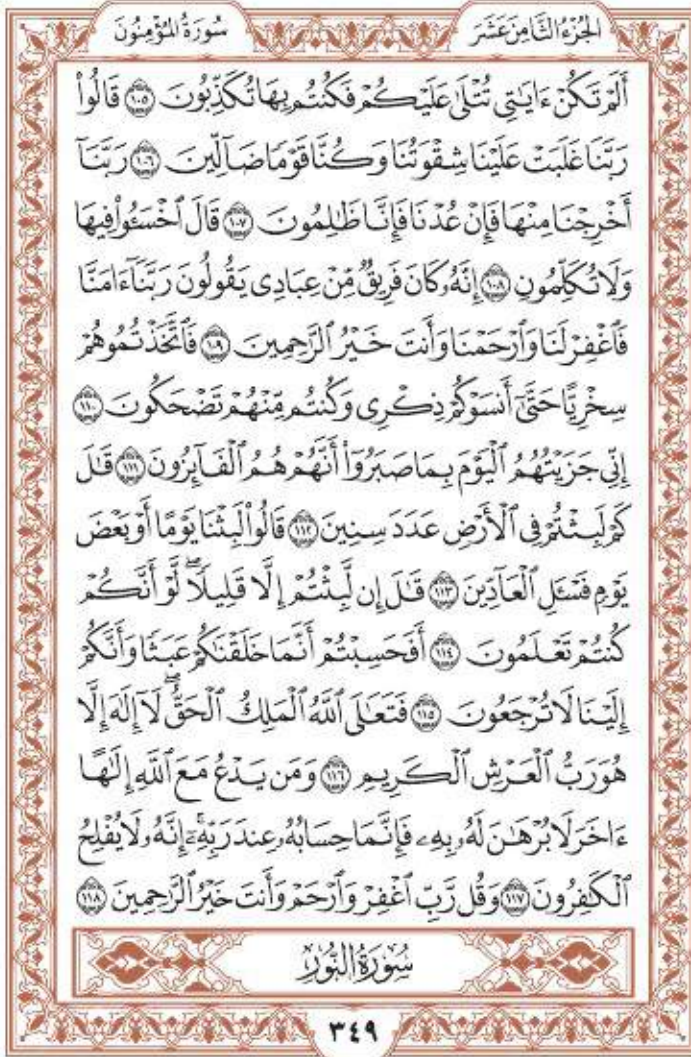 الجزء الثامن عشر
سورة المؤمنون
أَلَمْ تَكُنْ ءَايَـٰتِى تُتْلَىٰ عَلَيْكُمْ فَكُنتُم بِهَا تُكَذِّبُونَ ١٠٥ قَالُوا۟
رَبَّنَا غَلَبَتْ عَلَيْنَا شِقْوَتُنَا وَكُنَّا قَوْمًا ضَآلِّينَ ١٠٦ رَبَّنَآ
أَخْرِجْنَا مِنْهَا فَإِنْ عُدْنَا فَإِنَّا ظَـٰلِمُونَ ١٠٧ قَالَ ٱخْسَـُٔوا۟ فِيهَا
وَلَا تُكَلِّمُونِ ١٠٨ إِنَّهُۥ كَانَ فَرِيقٌ مِّنْ عِبَادِى يَقُولُونَ رَبَّنَآ ءَامَنَّا
فَٱغْفِرْ لَنَا وَٱرْحَمْنَا وَأَنتَ خَيْرُ ٱلرَّٰحِمِينَ ١٠٩ فَٱتَّخَذْتُمُوهُمْ
سِخْرِيًّا حَتَّىٰٓ أَنسَوْكُمْ ذِكْرِى وَكُنتُم مِّنْهُمْ تَضْحَكُونَ ١١٠
إِنِّى جَزَيْتُهُمُ ٱلْيَوْمَ بِمَا صَبَرُوٓا۟ أَنَّهُمْ هُمُ ٱلْفَآئِزُونَ ١١١ قَـٰلَ
كَمْ لَبِثْتُمْ فِى ٱلْأَرْضِ عَدَدَ سِنِينَ ١١٢ قَالُوا۟ لَبِثْنَا يَوْمًا أَوْ بَعْضَ
يَوْمٍ فَسْـَٔلِ ٱلْعَآدِّينَ ١١٣ قَـٰلَ إِن لَّبِثْتُمْ إِلَّا قَلِيلًا ۖ لَّوْ أَنَّكُمْ
كُنتُمْ تَعْلَمُونَ ١١٤ أَفَحَسِبْتُمْ أَنَّمَا خَلَقْنَـٰكُمْ عَبَثًا وَأَنَّكُمْ
إِلَيْنَا لَا تُرْجَعُونَ ١١٥ فَتَعَـٰلَى ٱللَّهُ ٱلْمَلِكُ ٱلْحَقُّ ۖ لَآ إِلَـٰهَ إِلَّا
هُوَ رَبُّ ٱلْعَرْشِ ٱلْكَرِيمِ ١١٦ وَمَن يَدْعُ مَعَ ٱللَّهِ إِلَـٰهًا
ءَاخَرَ لَا بُرْهَـٰنَ لَهُۥ بِهِۦ فَإِنَّمَا حِسَابُهُۥ عِندَ رَبِّهِۦٓ ۚ إِنَّهُۥ لَا يُفْلِحُ
ٱلْكَـٰفِرُونَ ١١٧ وَقُل رَّبِّ ٱغْفِرْ وَٱرْحَمْ وَأَنتَ خَيْرُ ٱلرَّٰحِمِينَ ١١٨
سُورَةُ النُّورِ
٣٤٩